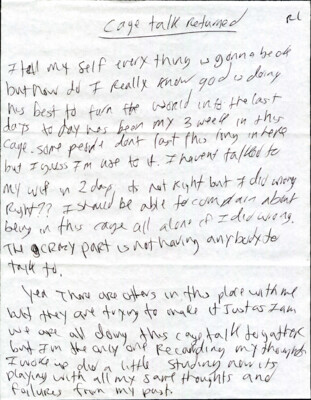 Cage talk Returned
I tell my self every thing is gonna be ok
but how do I Really know god is doing
his best to turn the world into the last
days to day has been my 3 week in this
cage. some people dont last this long in here
but I guess I'm use to it. I havent talked to
my wife in 2 days, its not Right but I did wrong
Right?? I should be able to complain about
being in this cage all alone if I did wrong.
The crazy part is not having any body to
talk to.
Yea There are others in this place with me
but they are trying to make it Just as I am
we are all doing this cage talk together
but I'm the only one Recording my thoughts
I woke up did a little studing now its
playing with all my same thoughts and
failures from my past.